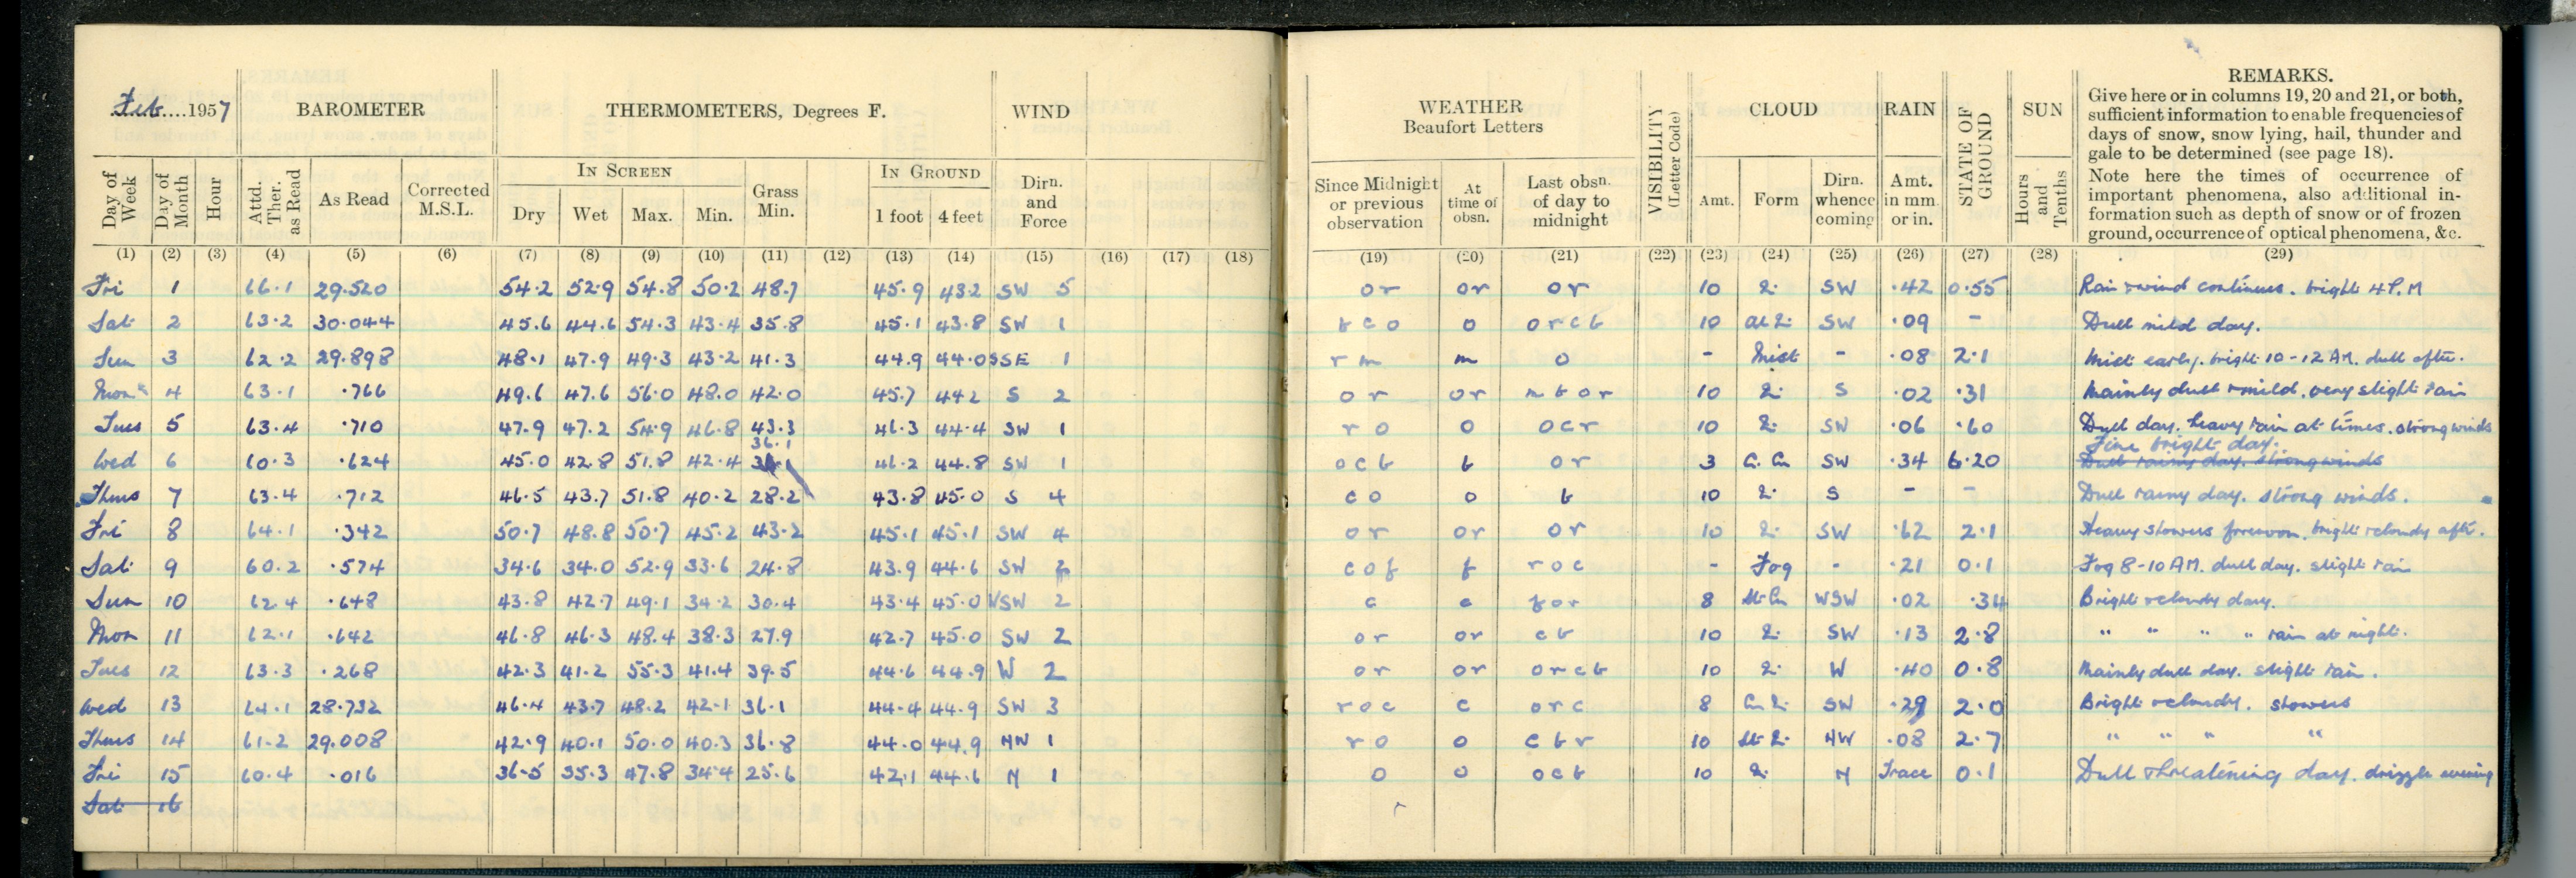 Feb....1957 BAROMETER THERMOMETERS, Degrees F. WIND
Day of Week Day of Month Hour Attd. Ther. as Read As Read Corrected M.S.L. IN SCREEN Dry Wet Max. Min. Grass Min. IN GROUND 1 foot 4 feet Dirn. and Force
(1) (2) (3) (4) (5) (6) (7) (8) (9) (10) (11) (12) (13) (14) (15) (16) (17) (18)
Fri 1 66.1 29.520 54.2 52.9 54.8 50.2 48.7 45.9 43.2 SW 5
Sat 2 63.2 30.044 45.6 44.6 54.3 43.4 35.8 45.1 43.8 SW 1
Sun 3 62.2 29.898 48.1 47.9 49.3 43.2 41.3 44.9 44.0 SSE 1
Mon 4 63.1 .766 49.6 47.6 56.0 48.0 42.0 45.7 44.2 S 2
Tues 5 63.4 .710 47.9 47.2 54.9 46.8 43.3 46.3 44.4 SW 1
36.1
Wed 6 60.3 .624 45.0 42.8 51.8 42.4 46.2 44.8 SW 1
Thurs 7 63.4 .712 46.5 43.7 51.8 40.2 28.2 43.8 45.0 S 4
Fri 8 64.1 .342 50.7 48.8 50.7 45.2 43.2 45.1 45.1 SW 4
Sat 9 60.2 .574 34.6 34.0 52.9 33.6 24.8 43.9 44.6 SW
Sun 10 62.4 .648 43.8 42.7 49.1 34.2 30.4 43.4 45.0 WSW 2
Mon 11 62.1 .642 46.8 46.3 48.4 38.3 27.9 42.7 45.0 SW 2
Tues 12 63.3 .268 42.3 41.2 55.3 41.4 39.5 44.6 44.9 W 2
Wed 13 64.1 28.732 46.4 43.7 48.2 42.1 36.1 44.4 44.9 SW 3
Thurs 14 61.2 29.008 42.9 40.1 50.0 40.3 36.8 44.0 44.9 NW 1
Fri 15 60.4 .016 36.5 35.3 47.8 34.4 25.6 42.1 44.6 N 1
Sat 16
WEATHER Beaufort Letters VISIBILITY (Letter Code) CLOUD RAIN STATE OF GROUND SUN REMARKS.
Give here or in columns 19, 20 and 21, or both,
sufficient information to enable frequencies of
days of snow, snow lying, hail, thunder and
gale to be determined (see page 18).
Note here the times of occurrence of
important phenomena, also additional in-
formation such as depth of snow or of frozen
ground, occurrence of optical phenomena, &c.
Since Midnight or previous observation At time of obsn. Last obsn. of day to midnight Amt. Form Dirn. whence coming Amt. in mm. or in. Hours and Tenths
(19) (20) (21) (22) (23) (24) (25) (26) (27) (28) (29)
or or or 10 SW .42 0.55 Rain & wind continues. bright 4 P.M
bco o orcb 10 SW .09 - Dull mild day.
rm m o - Mist - .08 2.1 Mist early. bright 10-12 AM. dull aftn.
or or 10 S .02 .31 Mainly dull & mild. very slight rain
ro o ocr 10 SW .06 .60 Dull day. heavy rain at times. strong winds
Fine bright day.
ocb b or 3 SW .34 6.20 Dull rainy day. strong winds
co o b 10 S - - Dull rainy day. strong winds.
or or or 10 SW .62 2.1 Heavy showers forenoon. bright & cloudy aftn.
cof f roc - Fog - .21 0.1 Fog 8-10 AM. dull day. slight rain
c c 8 WSW .02 .34 Bright & cloudy day.
or or cb 10 SW .13 2.8 " " " " rain at night.
or or orcb 10 W .40 0.8 Mainly dull day. slight rain.
roc c orc 8 SW .29 2.0 Bright & cloudy. showers
ro o cbr 10 NW .08 2.7 " " " "
o o ocb 10 N Trace 0.1 Dull threatening day. drizzle evening